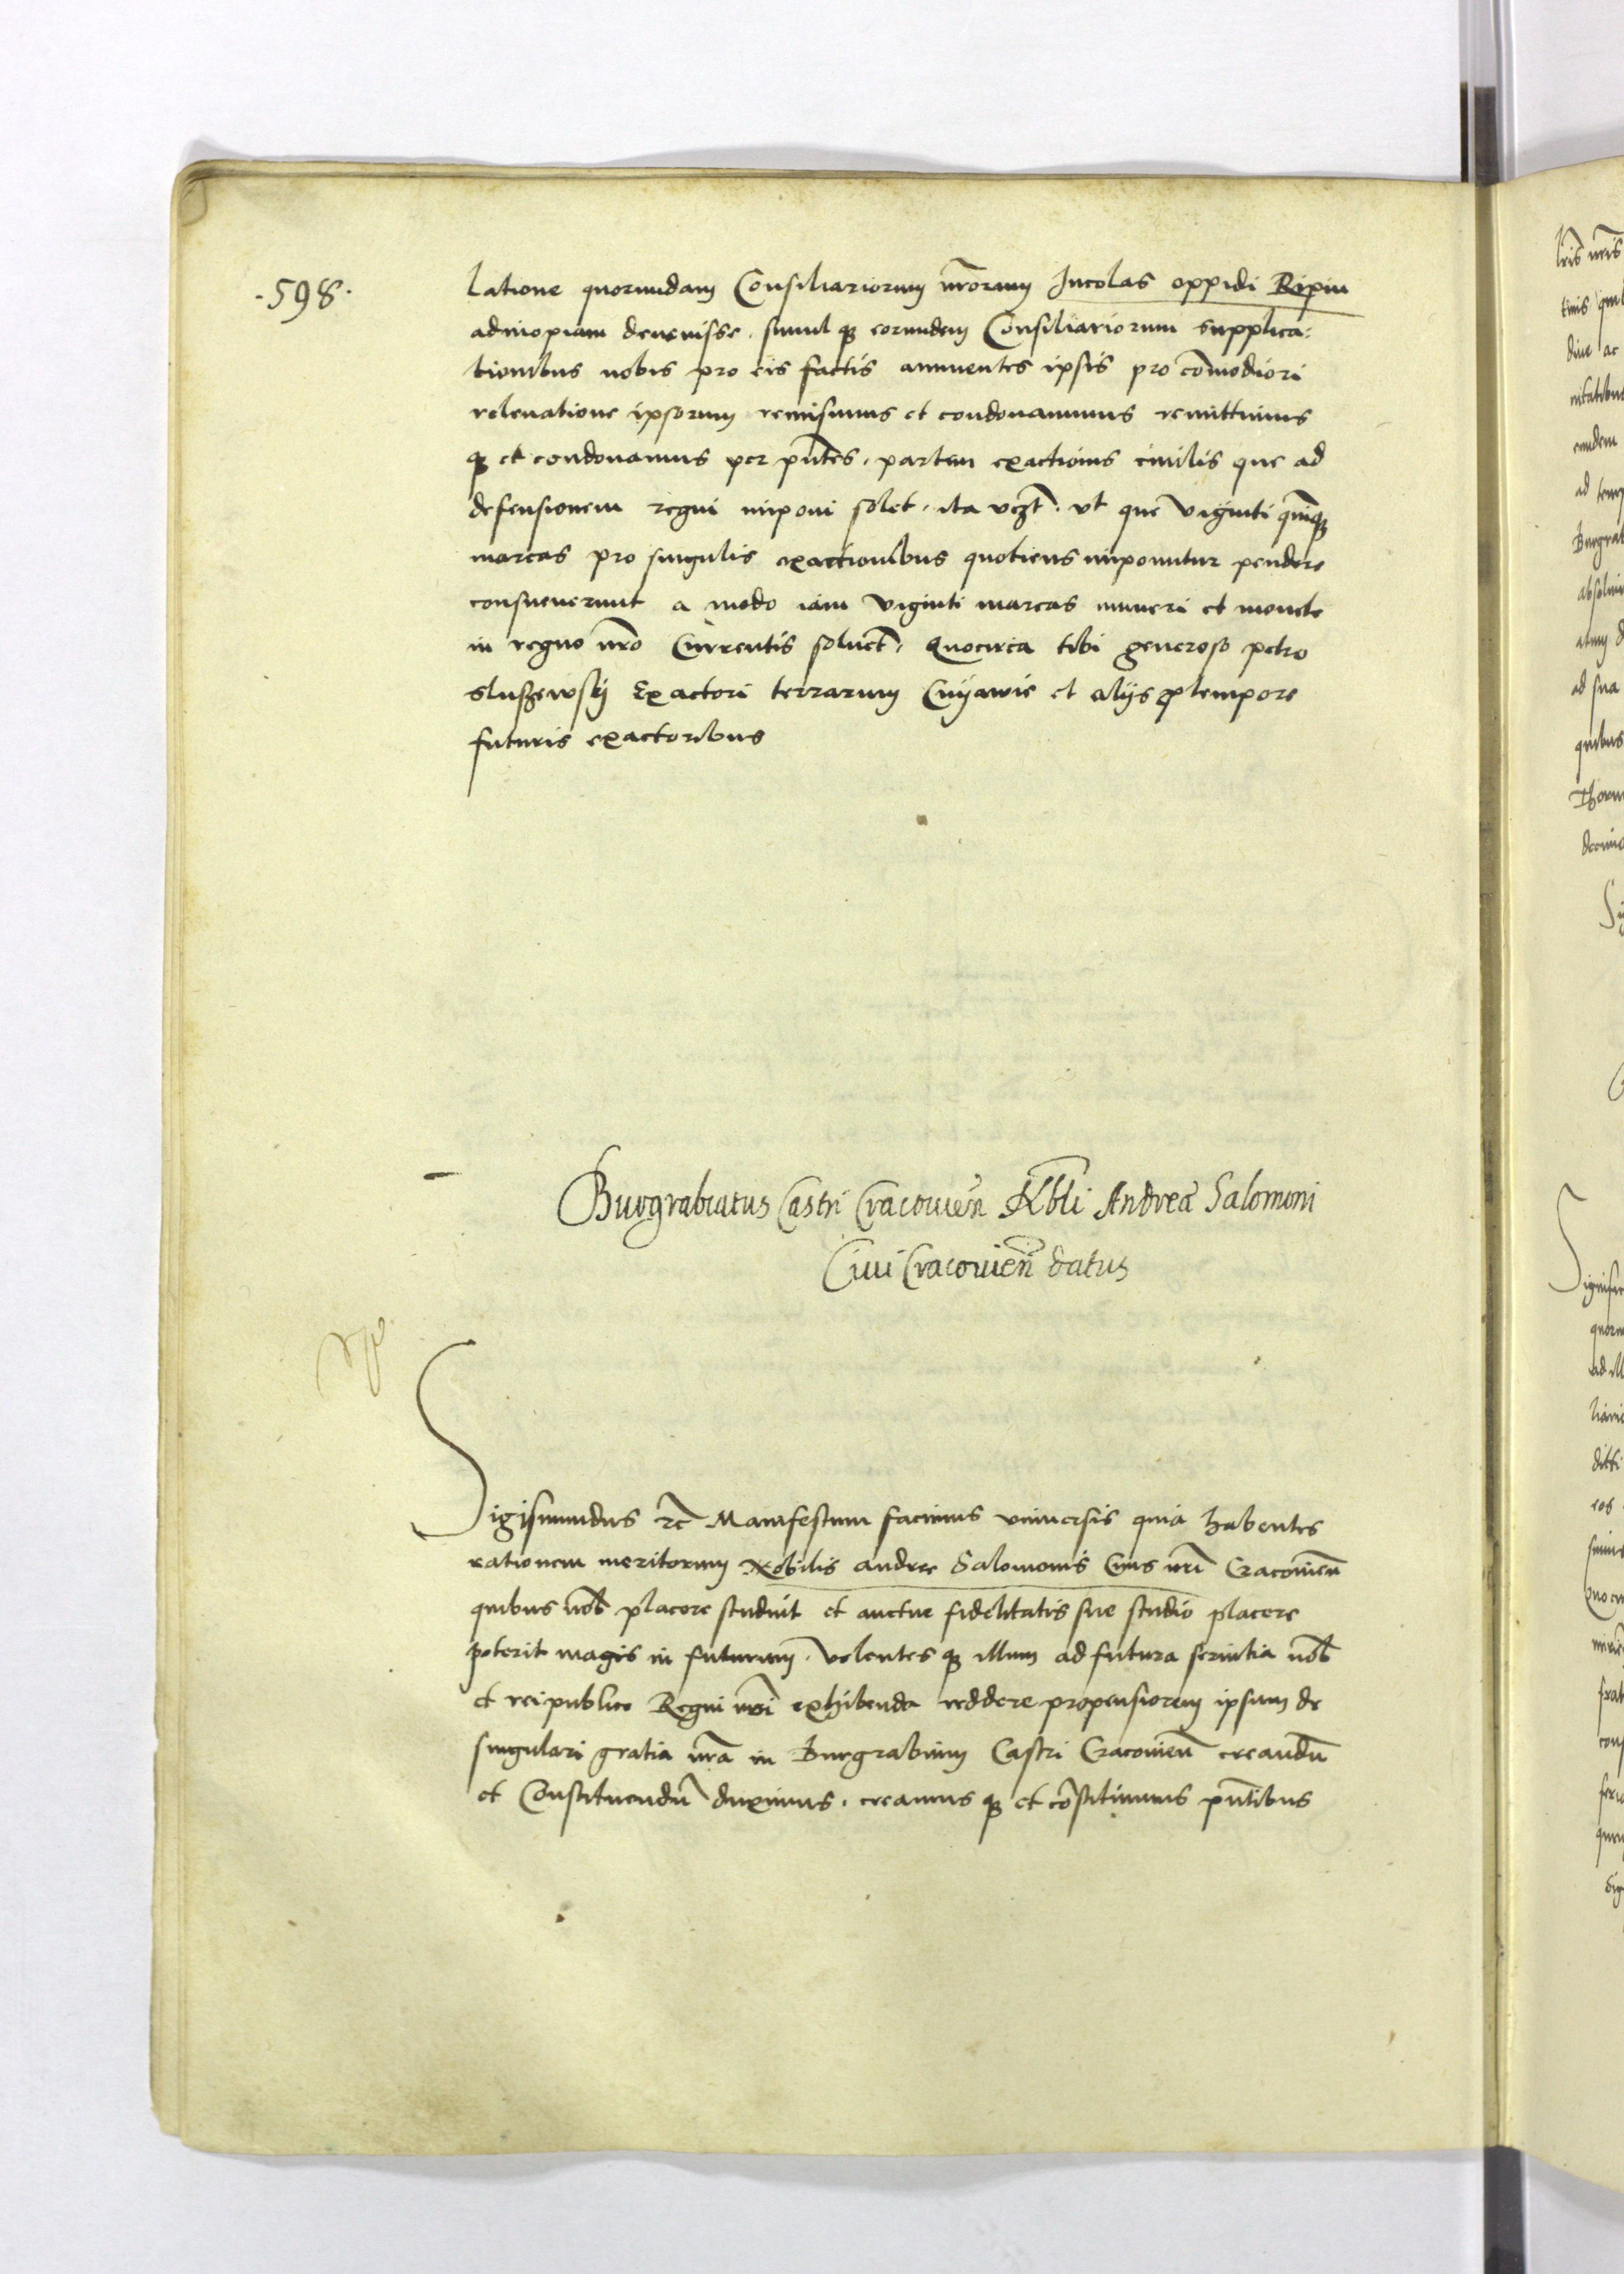 ·598·
latione quorundam Consiliariorum nr̄orum Incolas oppidi Ripin
adinopiam deuenisse. simul qȝ eorundem Consiliariorum supplica:
tionibus nobis pro eis factis annuentes ipsis pro cōmodiori
releuatione ipsorum remisimus et condonauimus remittimus
qȝ et condonamus per pn̄tes. partem exactionis ciuilis que ad
defensionem regni imponi solet. ita vcꝫt. vt que viginti quīqȝ
marcas pro singulis exactionibus quotiens imponuntur pendere
consueuerunt a modo iam viginti marcas numeri et monete
in regno nr̄o Currentis soluēt. Quocirca tibi generoso petro
Slusȝewsky Exactori terrarum Cuyawie et alijs ꝓ tempore
futuris exactoribus
Burgrabiatus Castri Cracouien̄ Nbli Andreæ Salomoni
Ciui Cracouien̄ datus
Sigismundus ꝛc̄ Manifestum facimus vniuersis quia habentes
rationem meritorum Nobilis andree Salomonis Ciuis nr̄i Cracouien̄
quibus nob̄ placere studuit et auctue fidelitatis sue studio placere
poterit magis in futurum. volentes qȝ illum ad futura seruitia nob̄
et rei publice Regni nr̄i exhibenda reddere propensiorem ipsum de
singulari gratia nr̄a in Burgrabium Castri Cracouien̄ creandū
et Constituendū duximus. creamus qȝ et cōstituimus pn̄tibus